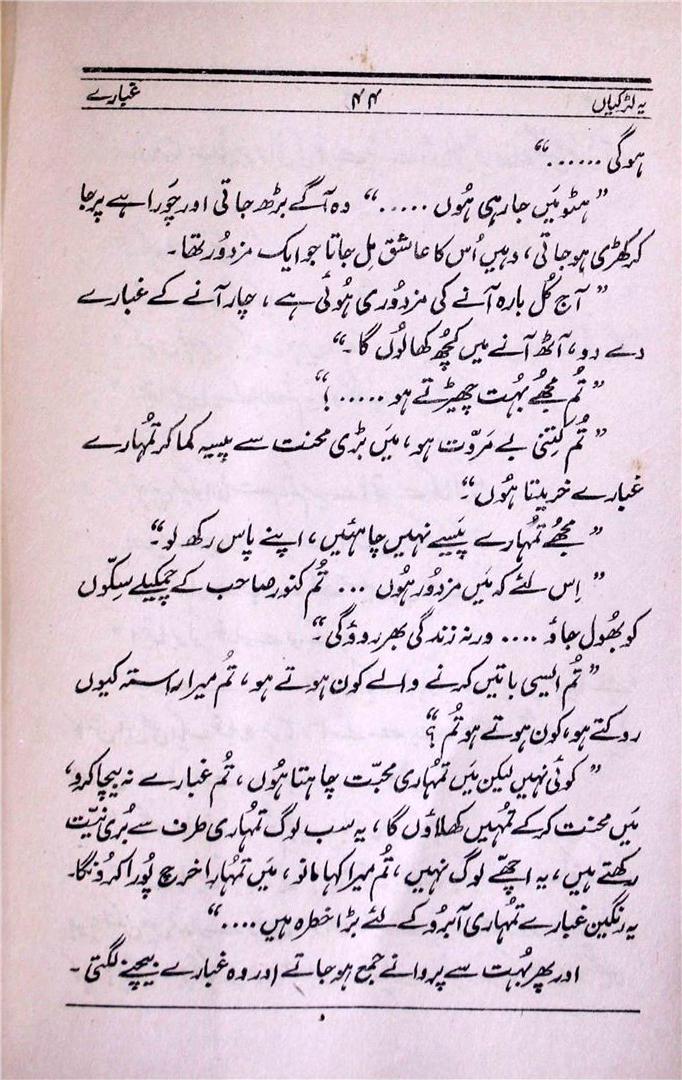 یہ لڑکیاں ۴۴ غبارے
ہوگی ......“
” ہٹو مَیں جا رہی ہُوں .....“ وہ آگے بڑھ جاتی اور چَوراہے پر جا
کر کھڑی ہو جاتی ، وہیں اُس کا عاشق مِل جاتا جو ایک مزدُور تھا۔
” آج کُل بارہ آنے کی مزدُوری ہُوئی ہے ، چار آنے کے غبارے
دے دو ، آٹھ آنے میں کچُھ کھا لُوں گا ۔“
” تُم مجُھے بہُت چھیڑتے ہو ..... !“
” تُم کِتنی بے مَروّت ہو ، میَں بڑی محنت سے پیسہ کما کر تمُہارے
غبارے خریدتا ہُوں ۔“
” مجُھے تمُہارے پَیسے نہیں چاہئیں ، اپنے پاس رکھ لو ۔“
” اِس لئے کہ مَیں مزدُور ہُوں ... تُم کنور صاحب کے چمکیلے سِکّوں
کو بھُول جاؤ .... ورنہ زندگی بھر روؤگی ۔“
” تُم ایسی باتیں کرنے والے کون ہوتے ہو ، تُم میرا راستہ کیوں
روکتے ہو ، کون ہوتے ہو تُم ؟“
” کوئی نہیں لیکن مَیں تمُہاری محبّت چاہتا ہُوں ، تُم غبارے نہ بیچا کرو ،
مَیں محنت کرکے تمُہیں کھلاؤں گا ، یہ سب لوگ تمُہاری طرف سے بُری نیّت
رکھتے ہیں ، یہ اچھّے لوگ نہیں ، تُم میرا کہا مانو ، میَں تمُہارا خرچ پُورا کرُونگا۔
یہ رنگین غبارے تمُہاری آبرُو کے لئے بڑا خطرہ ہیں ....“
اور پھر بہُت سے پروانے جمع ہو جاتے اور وہ غبارے بیچنے لگتی ۔